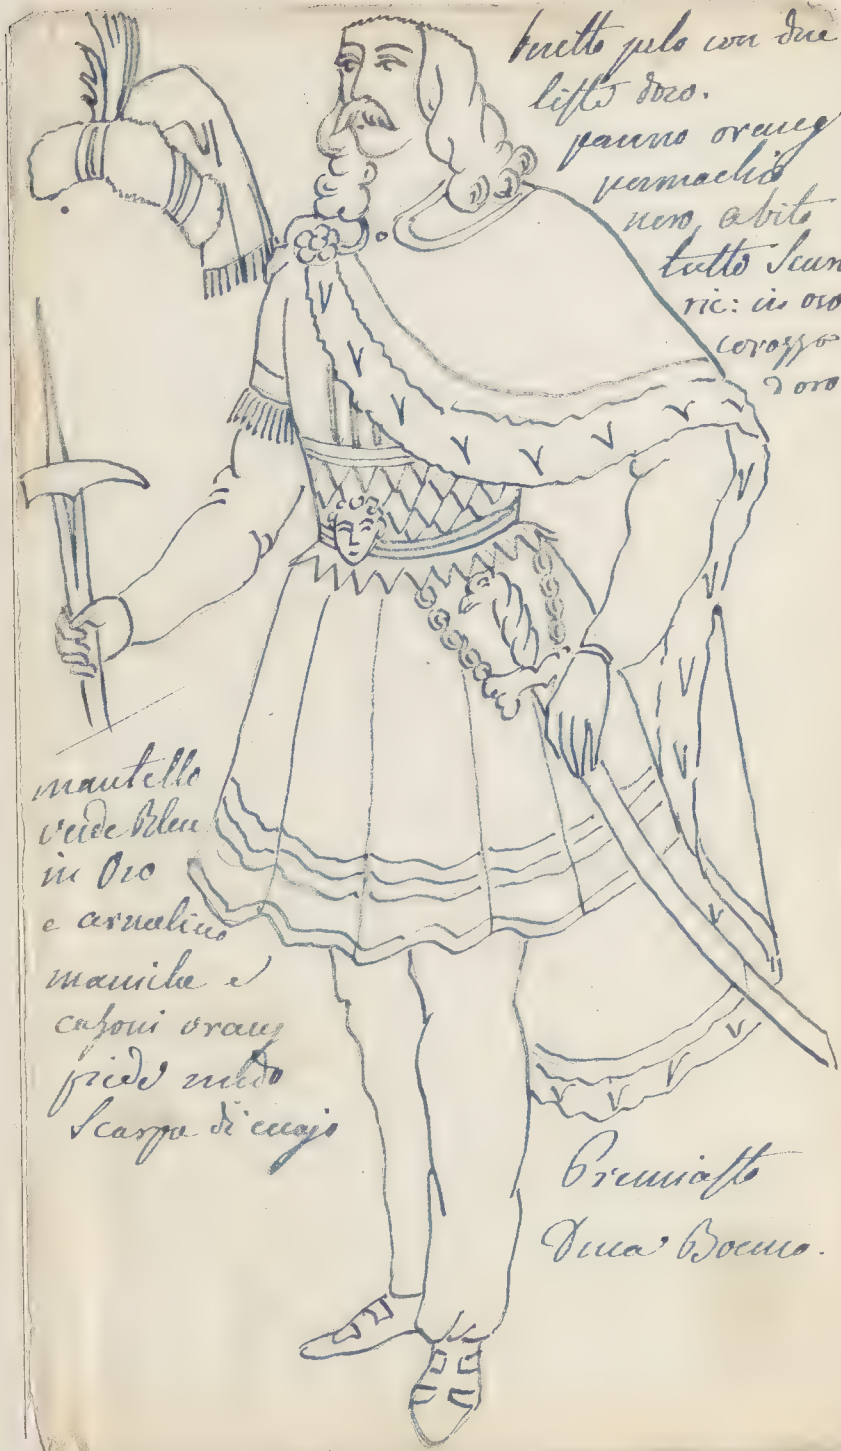 beretto pelo con due
liste d'oro.
panno orang
pennachio
nero, abito
tutto Scar
ric: in oro
corazza
d oro
mantello
verde Bleu
in Oro
e armelino
maniche e
calzoni orang
piede nudo
Scarpa di cuojo
Duca Boemo.